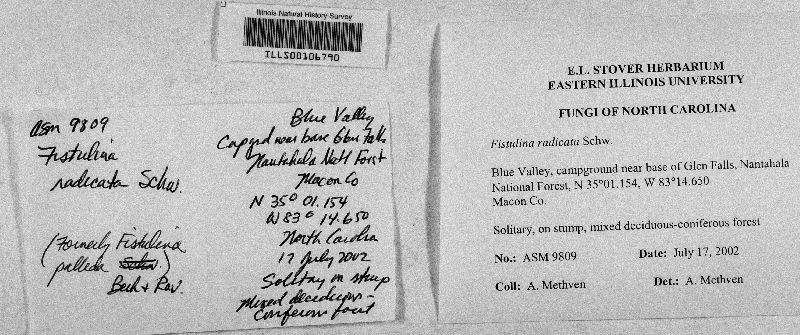 Illinois Natural History Survey
ILLS00106790
asm 9809
Fistulina
radicata Schw.
(Formerly Fistulina
pallida Schw.)
Berk & Rav.
Blue Valley
Campgrd near base Glen Falls
Nantahala Natl Forst
Macon Co
N 35° 01.154
W 83° 14.650
North Carolina
17 July 2002
Solitay on stump
Mixed deciduous-
Coniferous forst
E.L. STOVER HERBARIUM
EASTERN ILLINOIS UNIVERSITY
FUNGI OF NORTH CAROLINA
Fistulina radicata Schw.
Blue Valley, campground near base of Glen Falls, Nantahala
National Forest, N 35°01.154, W 83°14.650
Macon Co.
Solitary, on stump, mixed deciduous-coniferous forest
No.: ASM 9809 Date: July 17, 2002
Coll: A. Methven Det.: A. Methven